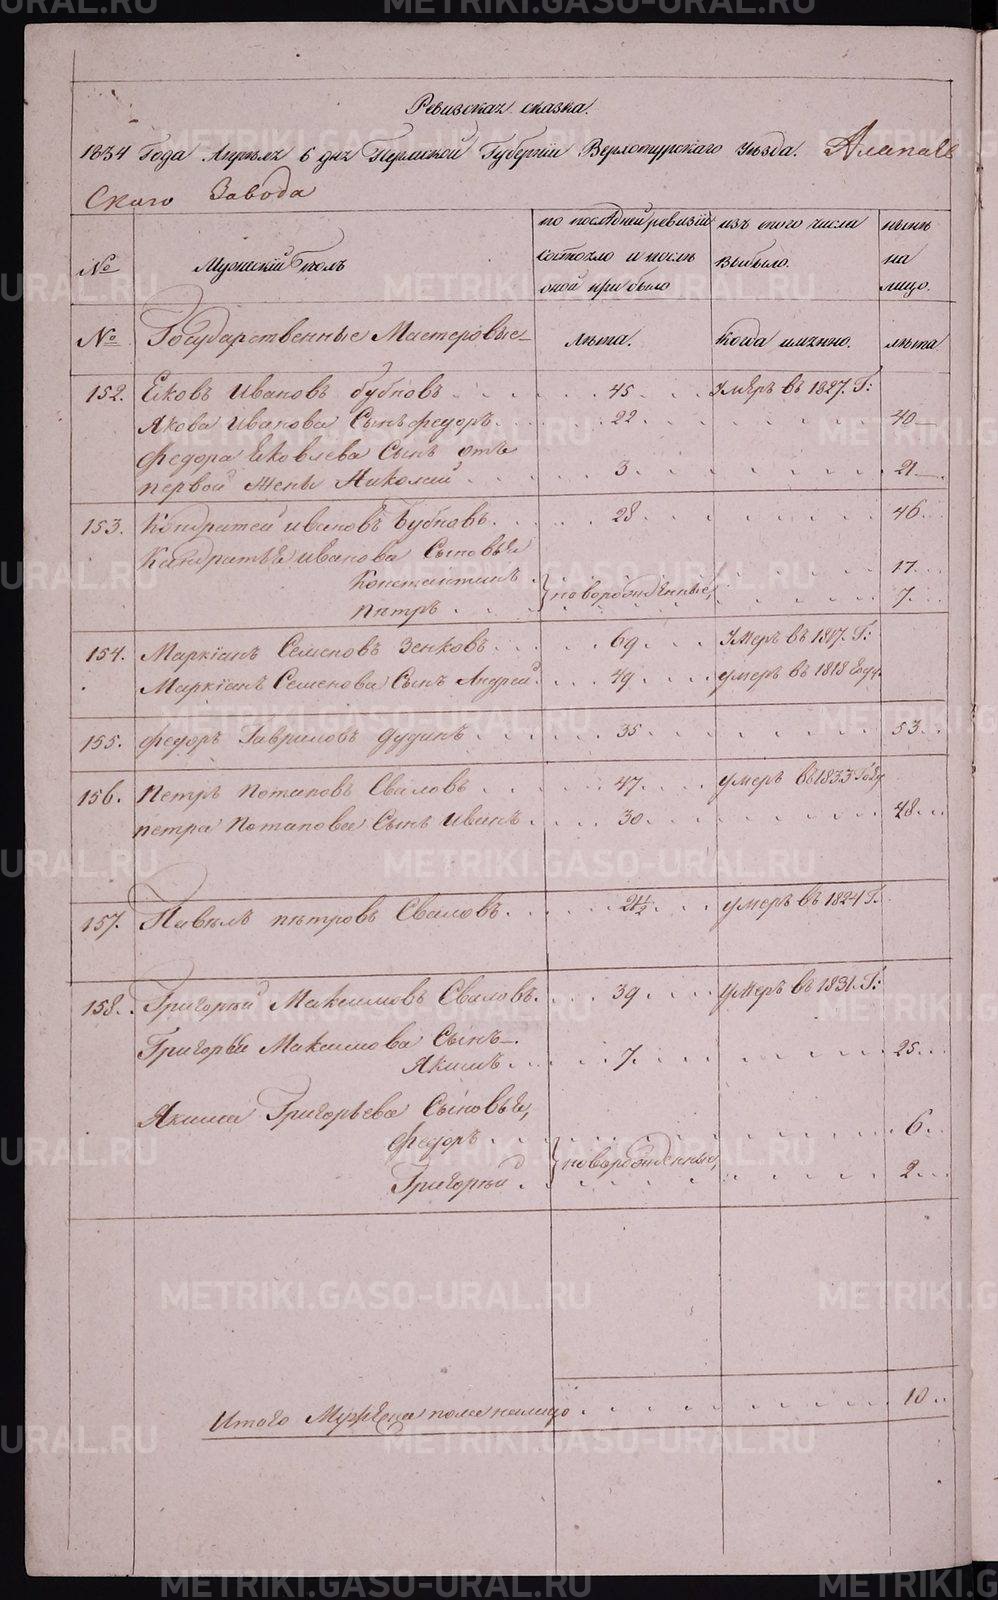 Ревизская сказка.
1834 года Апреля 6 дня Пермской Губернии Верхотурскаго Уезда. Алапаев
скаго Завода
№ Мужеский полъ по последней ревизіи состояло и после оной прибыло изъ того числа выбыло. ныне на лицо.
№ Государственные Мастеровые лета. когда имянно. лета
152. Яковъ Ивановъ Бубновъ 45 умеръ въ 1827. Г:
Якова Иванова Сынъ федоръ 22 40
федора Яковлева Сынъ отъ
первой жены Николай 3 21
153. Кондратей Ивановъ Бубновъ 28 46
Кондратья Иванова Сыновья
Константинъ новорожденные, 17
Петръ 7
154. Маркіанъ Семеновъ Зенковъ 69 умеръ въ 1817. Г:
Маркіанъ Семенова Сынъ Андрей 49 умеръ въ 1818 Году
155. федоръ Гавриловъ Дудинъ 35 53
156. Петръ Потаповъ Сваловъ 47 умеръ въ 1833 Году
петра Потапова Сынъ Иванъ 30 48
157. Павелъ петровъ Сваловъ умеръ въ 1824 Г.
158. Григорий Максимовъ Сваловъ 39 умеръ въ 1831. Г:
Григорья Максимова Сынъ
Якимъ 7 25
Якима Григорьева Сыновья,
федоръ новорожденные, 6
Григорий 2
Итого Мужеска пола налицо 10
METRIKI.GASO-URAL.RU